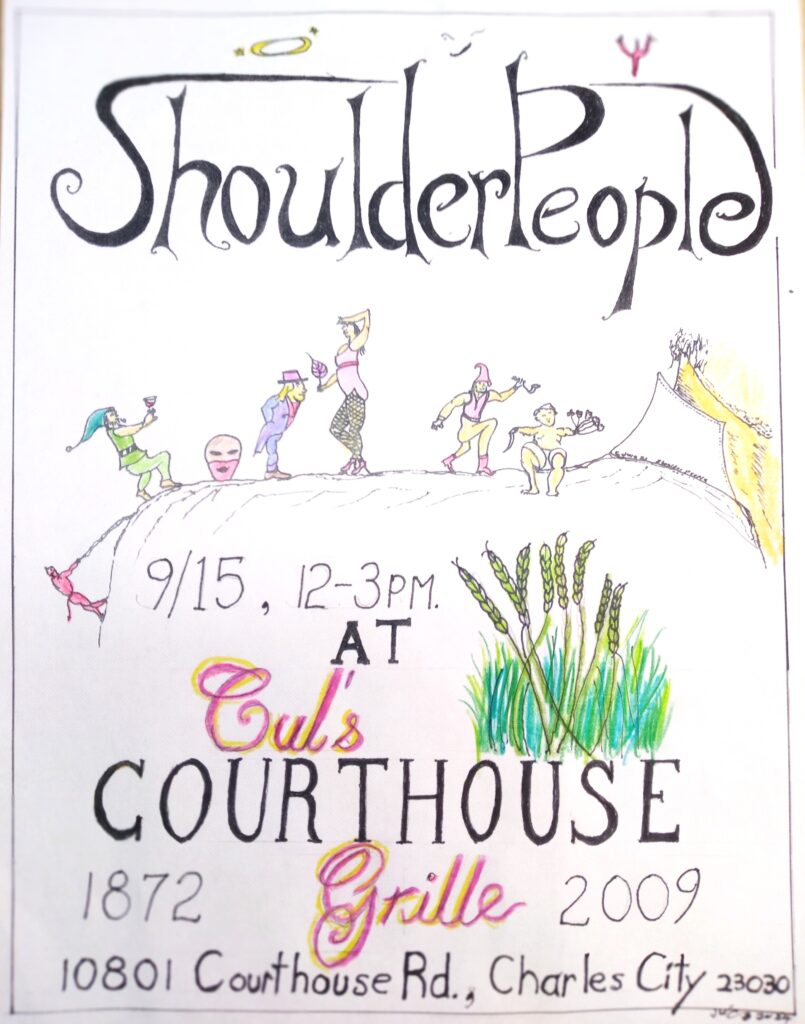 ShoulderPeople
9/15, 12-3PM.
AT
Cul's
COURTHOUSE
1872 Grille 2009
10801 Courthouse Rd., Charles City 23030